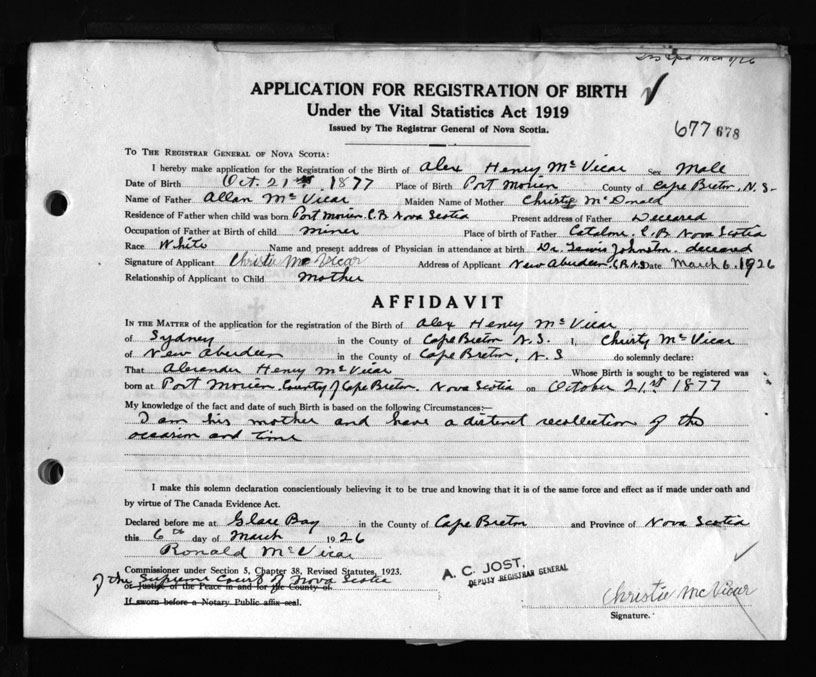 APPLICATION FOR REGISTRATION OF BIRTH
Under the Vital Statistics Act 1919
Issued by The Registrar General of Nova Scotia.
677 678
TO THE REGISTRAR GENERAL OF NOVA SCOTIA:
I hereby make application for the Registration of the Birth of Alex Henry McVicar Sex Male
Date of Birth Oct. 21st 1877 Place of Birth Port Morien County of Cape Breton, N.S.
Name of Father Allan McVicar Maiden Name of Mother Christy McDonald
Residence of Father when child was born Port Morien C.B. Nova Scotia Present address of Father Deceared
Occupation of Father at Birth of child miner Place of birth of Father Catalone, C.B. Nova Scotia
Race White Name and present address of Physician in attendance at birth Dr. Lewis Johnston. deceared
Signature of Applicant Christie McVicar Address of Applicant New Aberdeen, C.B. N.S Date March 6. 1926
Relationship of Applicant to Child mother
AFFIDAVIT
IN THE MATTER of the application for the registration of the Birth of Alex Henry McVicar
of Sydney in the County of Cape Breton N.S. I, Christy McVicar
of New Aberdeen in the County of Cape Breton, N.S do solemnly declare:
That Alexander Henry McVicar Whose Birth is sought to be registered was
born at Port Morien, County of Cape Breton. Nova Scotia on October 21st 1877
My knowledge of the fact and date of such Birth is based on the following Circumstances:—
I am his mother and have a distinct recollection of the
occasion and time
I make this solemn declaration conscientiously believing it to be true and knowing that it is of the same force and effect as if made under oath and
by virtue of The Canada Evidence Act.
Declared before me at Glace Bay in the County of Cape Breton and Province of Nova Scotia
this 6th day of March 1926
Ronald McVicar
Commissioner under Section 5, Chapter 38, Revised Statutes, 1923.
of the Supreme Court of Nova Scotia
or Justice of the Peace in and for the County of
If sworn before a Notary Public affix seal.
A. C. JOST,
DEPUTY REGISTRAR GENERAL
Christie McVicar
Signature.